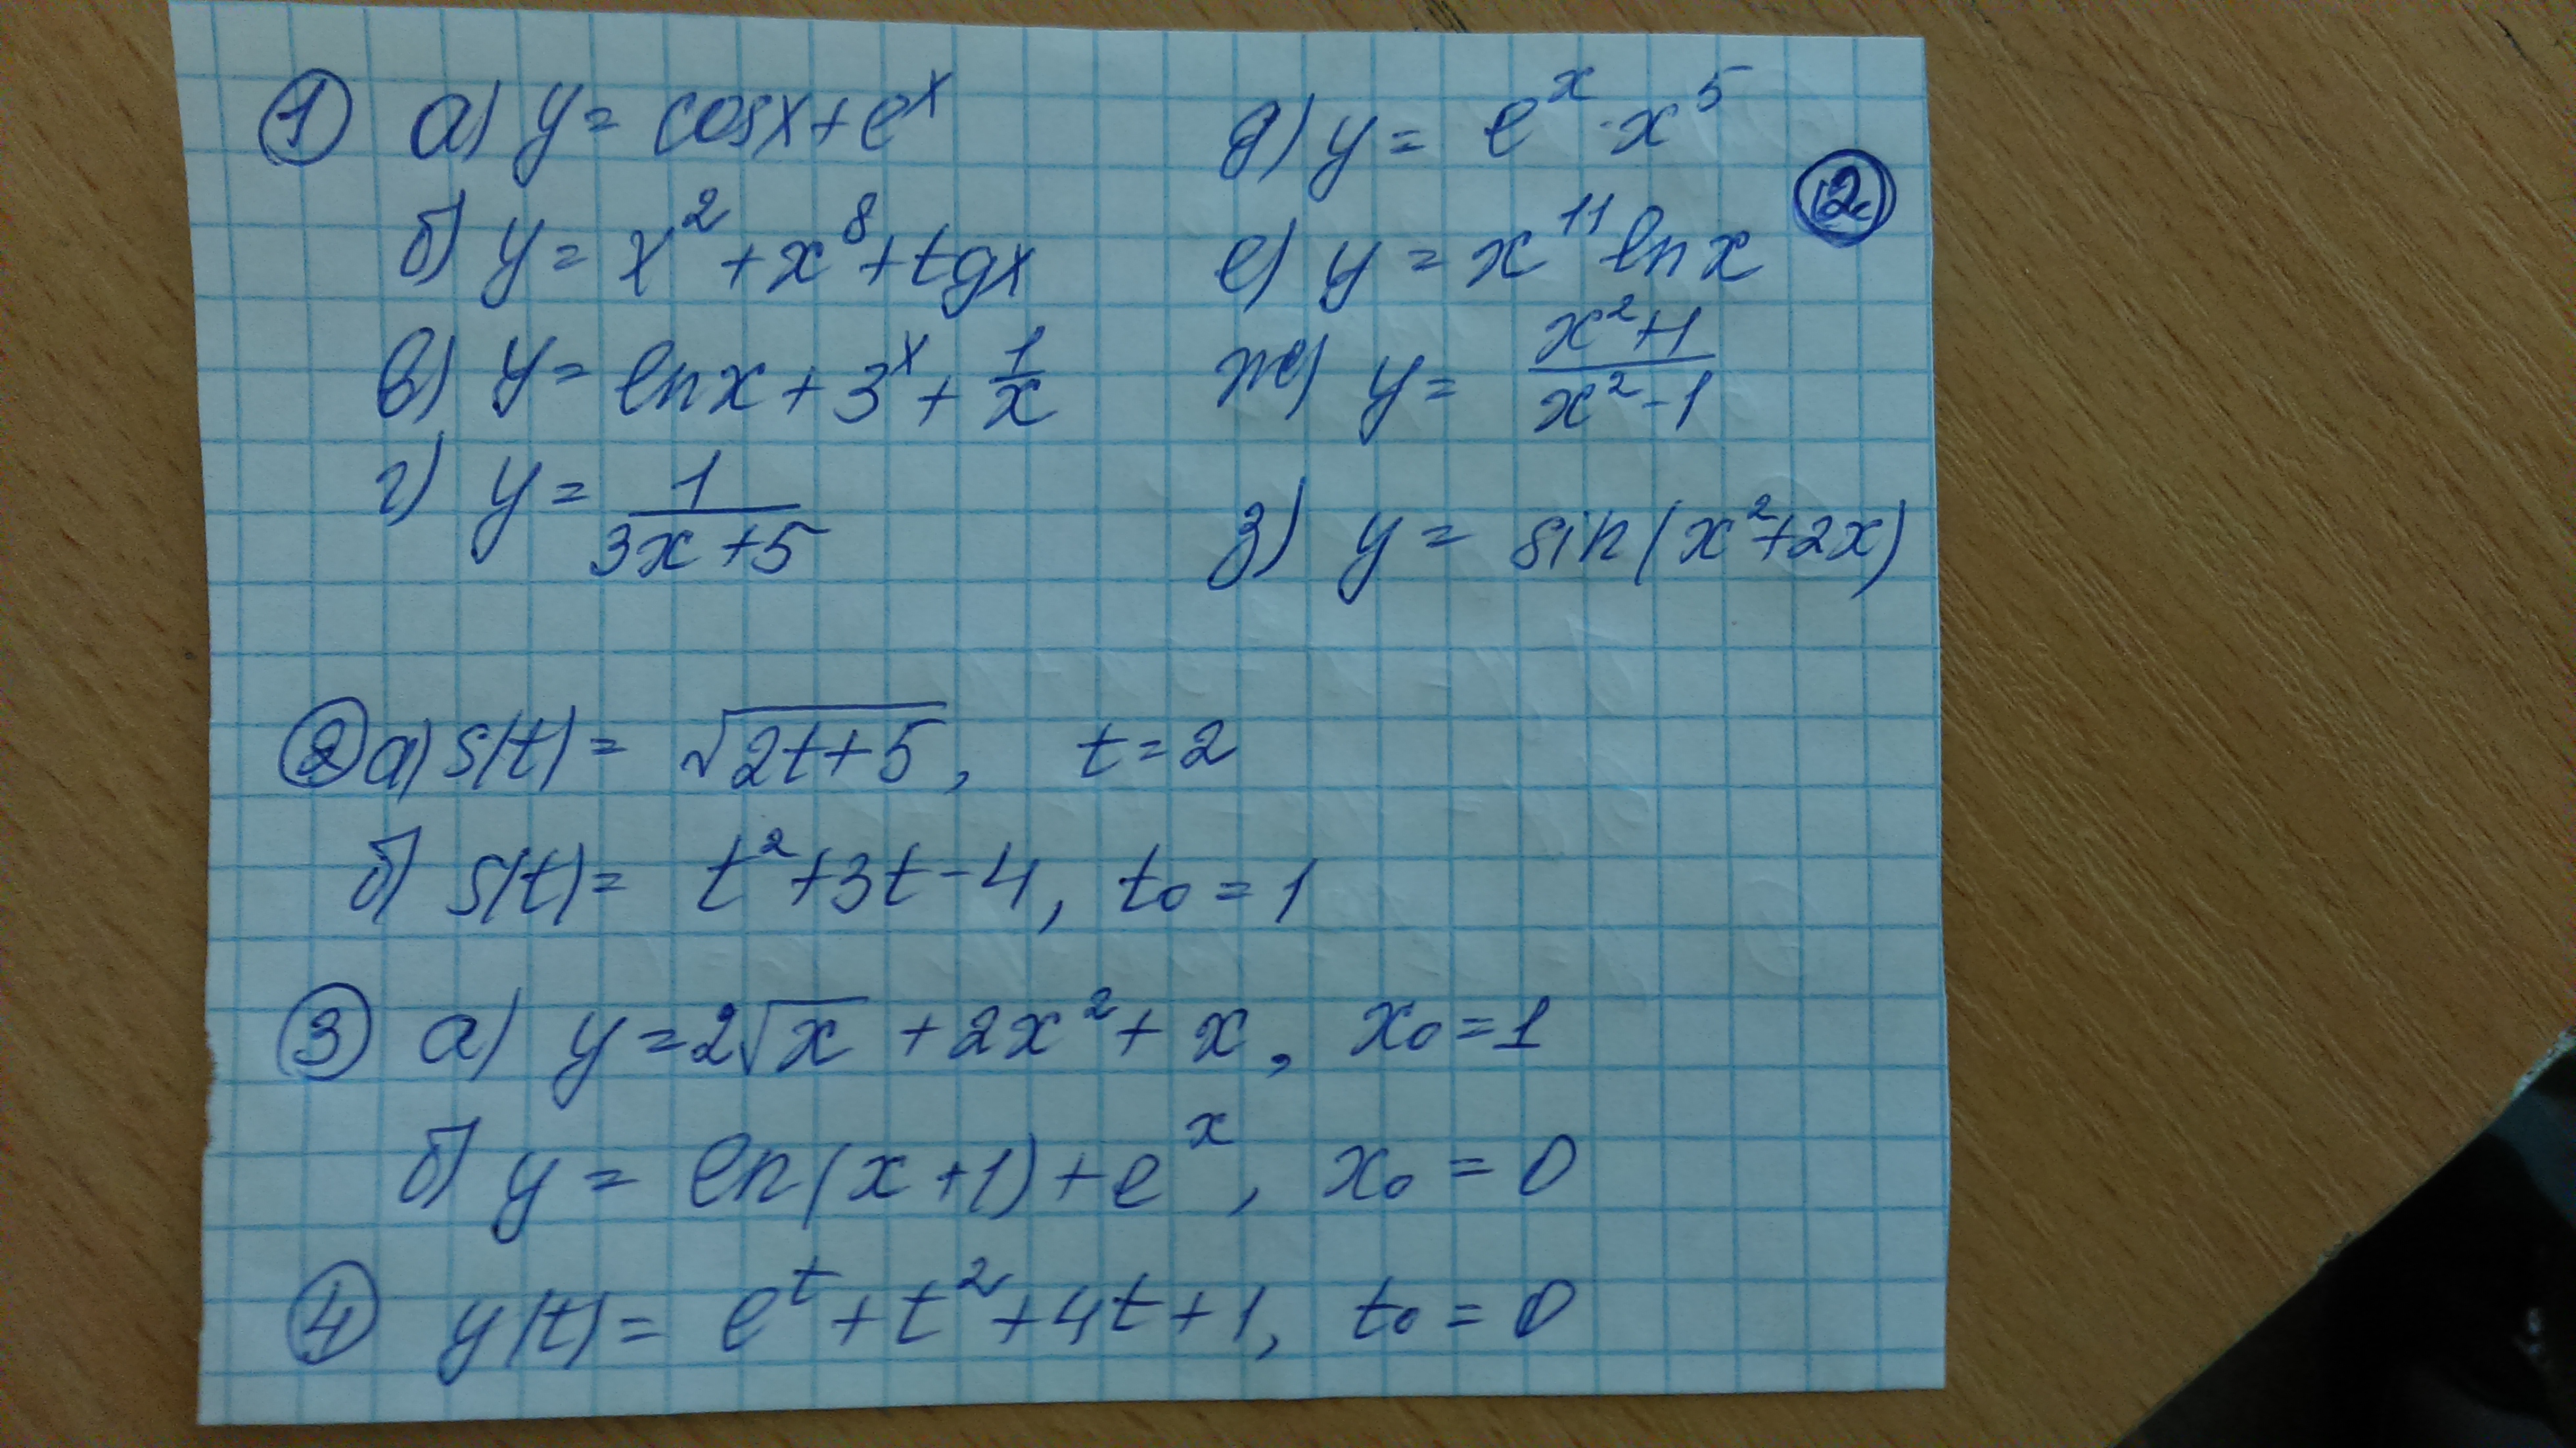 1 а) y = cosx + e^x
б) y = x^2 + x^8 + tgx
в) y = ln x + 3^x + 1/x
г) y = 1/(3x + 5)
д) y = e^x · x^5
12
е) y = x^11 ln x
ж) y = (x^2 + 1)/(x^2 - 1)
з) y = sin(x^2 + 2x)
2 а) s(t) = √(2t + 5), t = 2
б) s(t) = t^2 + 3t - 4, t₀ = 1
3 а) y = 2√x + 2x^2 + x, x₀ = 1
б) y = ln(x + 1) + e^x, x₀ = 0
4 y(t) = e^t + t^2 + 4t + 1, t₀ = 0